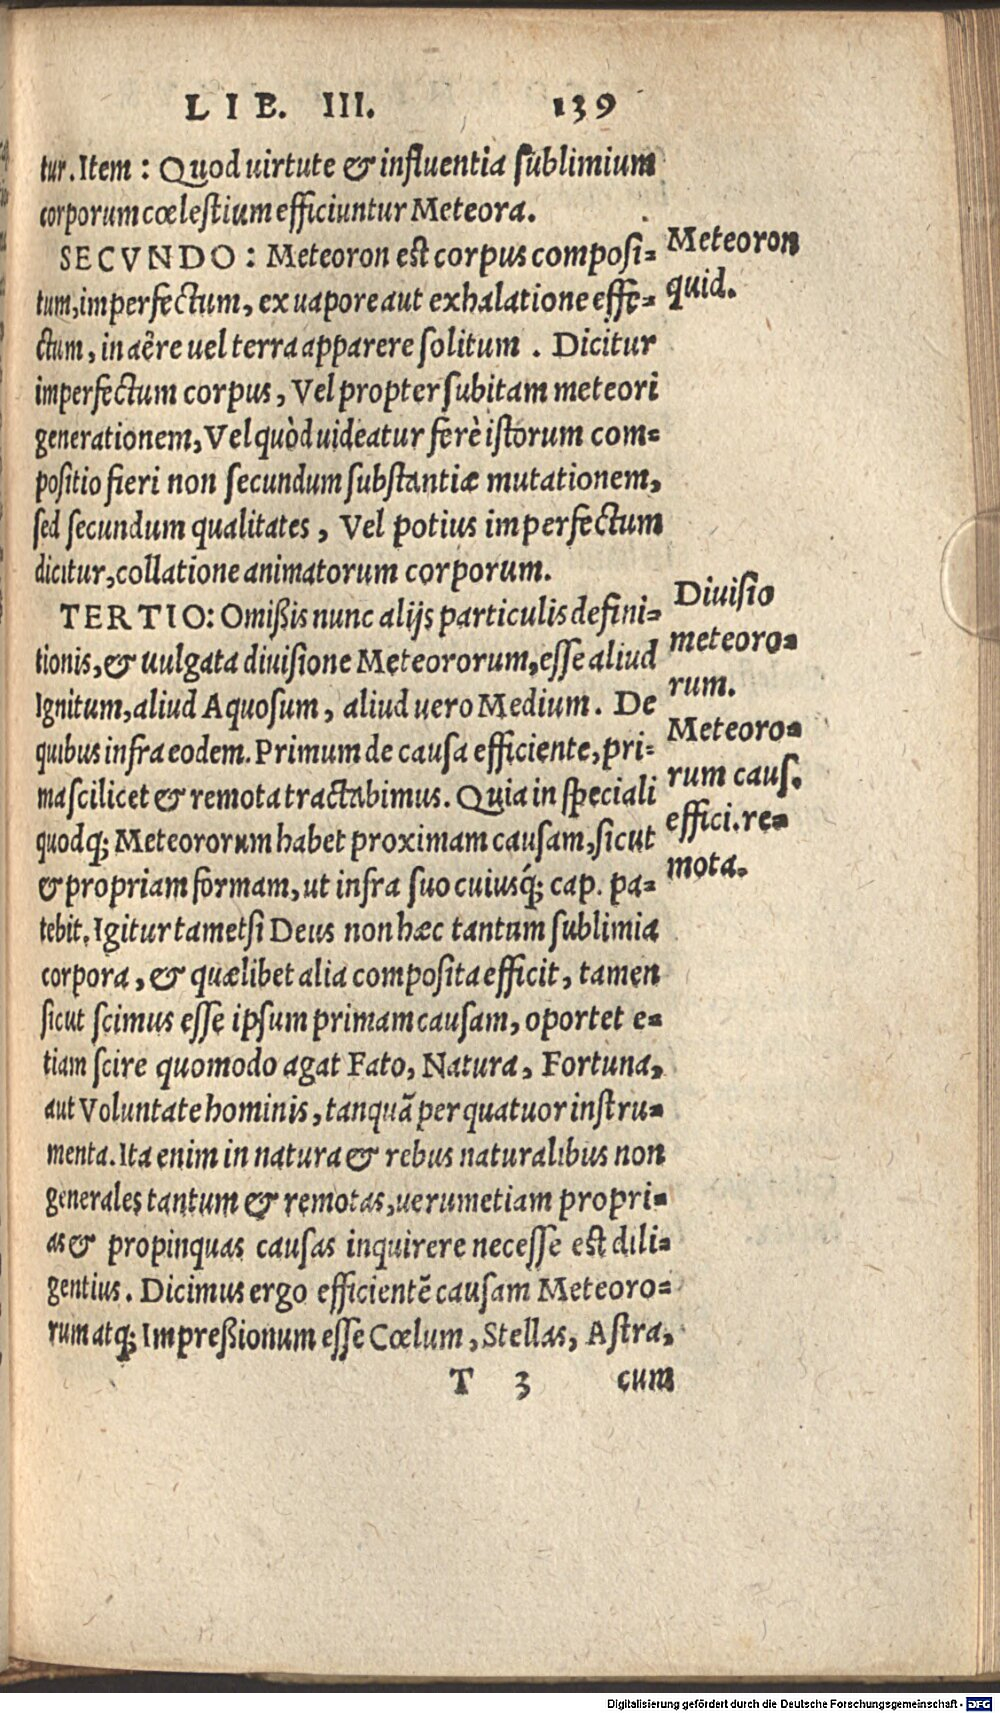 LIB. III. 139
tur. Item: Quod uirtute & influentia sublimium
corporum cœlestium efficiuntur Meteora.
SECVNDO: Meteoron est corpus composi-
tum, imperfectum, ex uapore aut exhalatione effe-
ctum, in aëre uel terra apparere solitum. Dicitur
imperfectum corpus, Vel propter subitam meteori
generationem, Vel quòd uideatur ferè istorum com-
positio fieri non secundum substantiæ mutationem,
sed secundum qualitates, Vel potius imperfectum
dicitur, collatione animatorum corporum.
Meteoron
quid.
TERTIO: Omißis nunc alijs particulis defini-
tionis, & uulgata diuisione Meteororum, esse aliud
Ignitum, aliud Aquosum, aliud uero Medium. De
quibus infra eodem. Primum de causa efficiente, pri-
ma scilicet & remota tractabimus. Quia in speciali
quodq; Meteororum habet proximam causam, sicut
& propriam formam, ut infra suo cuiusq́; cap. pa-
tebit. Igitur tametsi Deus non hæc tantum sublimia
corpora, & quælibet alia composita efficit, tamen
sicut scimus esse ipsum primam causam, oportet e-
tiam scire quomodo agat Fato, Natura, Fortuna,
aut Voluntate hominis, tanquã per quatuor instru-
menta. Ita enim in natura & rebus naturalibus non
generales tantum & remotas, uerumetiam propri-
as & propinquas causas inquirere necesse est dili-
gentius. Dicimus ergo efficientẽ causam Meteoro-
rum atq; Impreßionum esse Cœlum, Stellas, Astra,
Diuisio
meteoro-
rum.
Meteoro-
rum caus.
effici. re-
mota.
T 3 cum
Digitalisierung gefördert durch die Deutsche Forschungsgemeinschaft - DFG